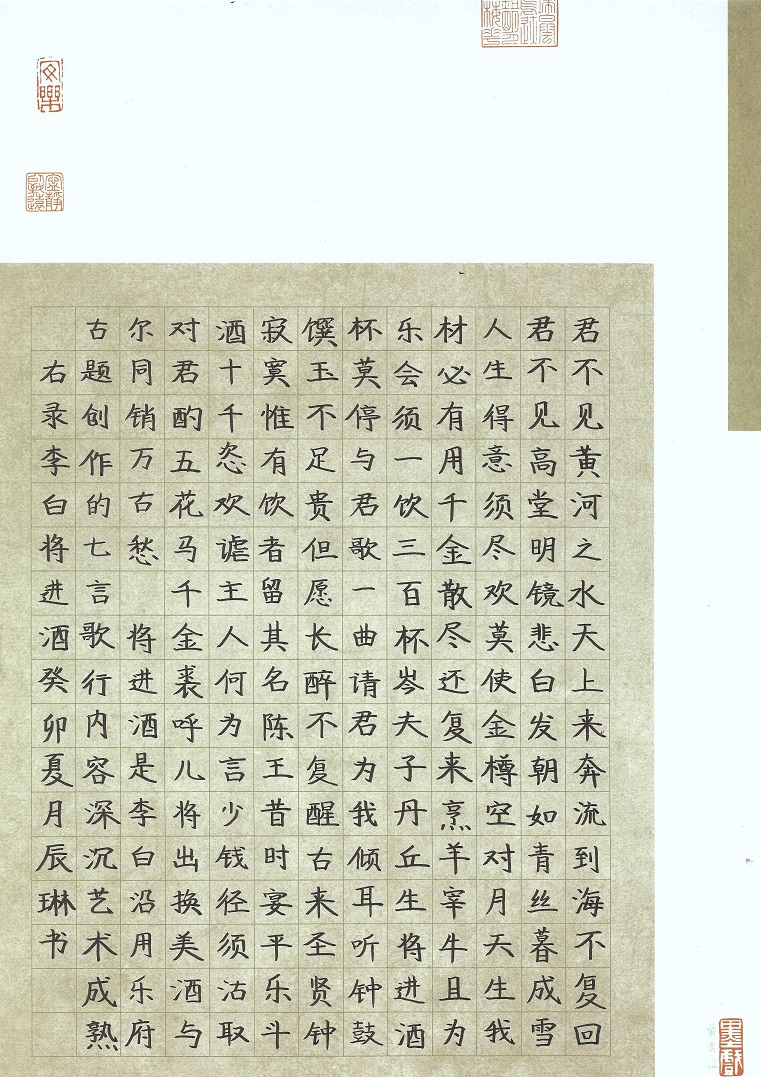 君不见黄河之水天上来奔流到海不复回
君不见高堂明镜悲白发朝如青丝暮成雪
人生得意须尽欢莫使金樽空对月天生我
材必有用千金散尽还复来烹羊宰牛且为
乐会须一饮三百杯岑夫子丹丘生将进酒
杯莫停与君歌一曲请君为我倾耳听钟鼓
馔玉不足贵但愿长醉不复醒古来圣贤钟
寂寞惟有饮者留其名陈王昔时宴平乐斗
酒十千恣欢谑主人何为言少钱径须沽取
对君酌五花马千金裘呼儿将出换美酒与
尔同销万古愁 将进酒是李白沿用乐府
古题创作的七言歌行内容深沉艺术成熟
右录李白将进酒癸卯夏月辰琳书
安樂
寧靜致遠
墨戲